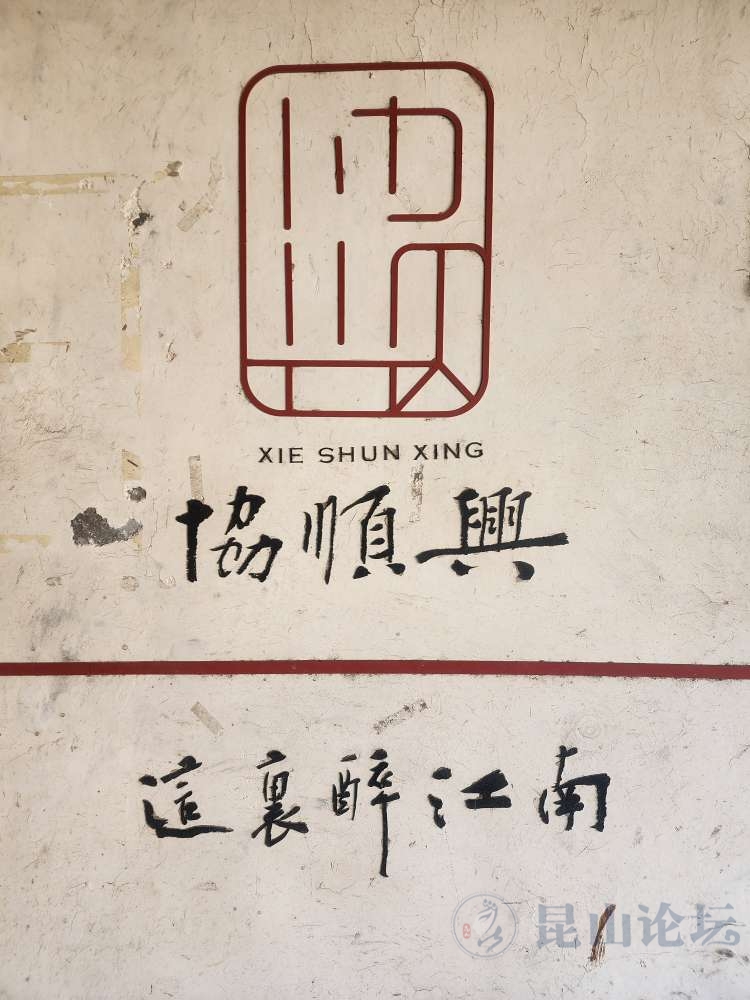 XIE SHUN XING
協順興
這裏醉江南
昆山论坛